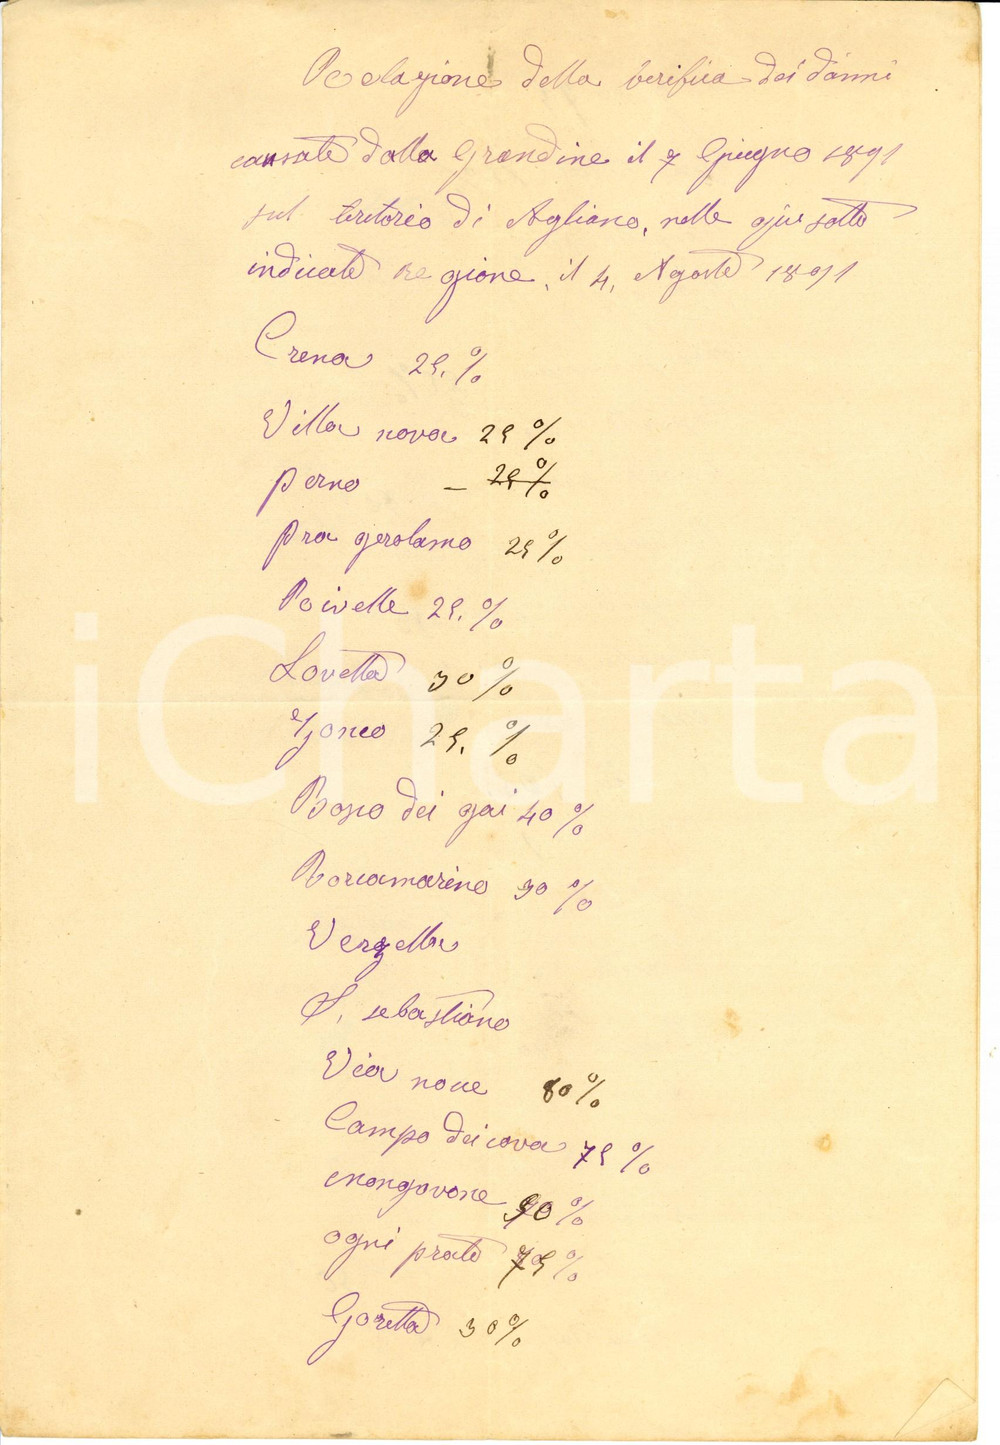 Relazione della verifica dei danni
causate dalla Grandine il 7 Giugno 1891
sul teritorio di Agliano, nelle giu sotto
indicate regione, il 4, Agosto 1891
Crena 25. %
Villa nova 25 %
perno – 25 %
pra gerolamo 25 %
Roivelle 25. %
Lovetta 30 %
Zonco 25. %
Bosco dei gai 40 %
Borcamarino 30 %
Verzella
S. sebastiano
Via nove 80 %
Campo dei cova 75 %
mongovone 90 %
ogni prato 75 %
Goretta 30 %
iCharta